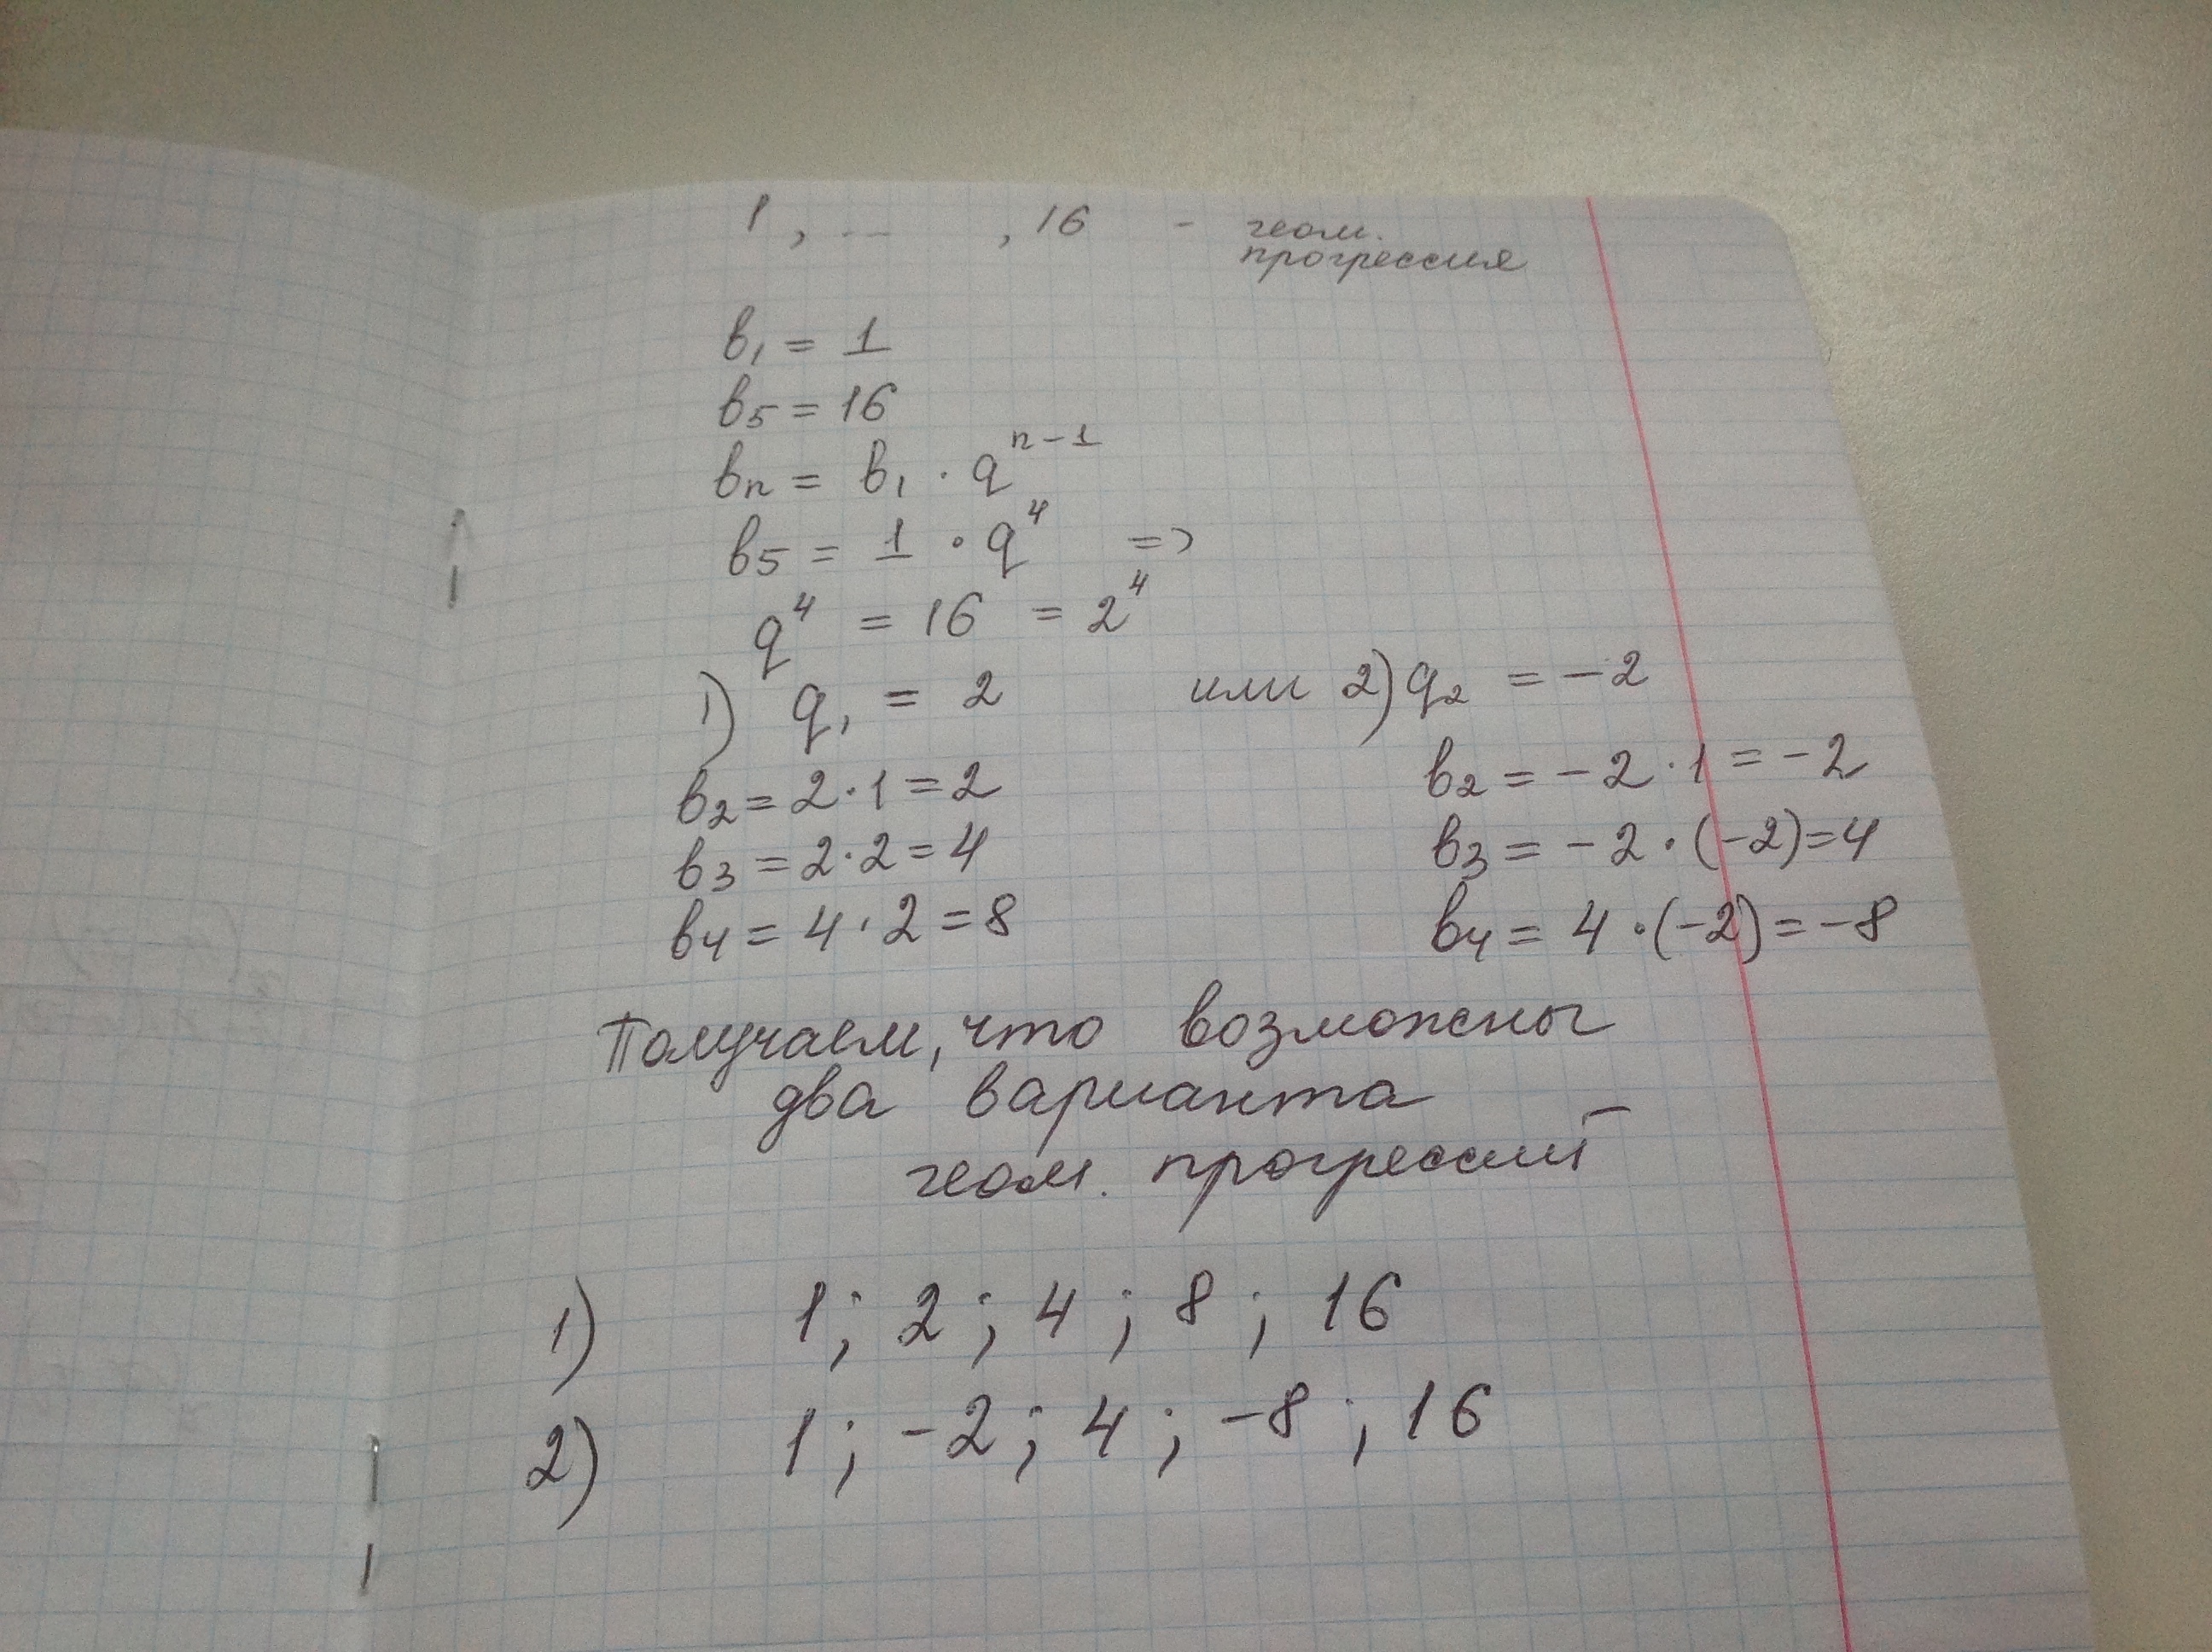 1, ... , 16 - геом.
прогрессия
b₁ = 1
b₅ = 16
bₙ = b₁ · qⁿ⁻¹
b₅ = 1 · q⁴ =>
q⁴ = 16 = 2⁴
1) q₁ = 2 или 2) q₂ = -2
b₂ = 2 · 1 = 2 b₂ = -2 · 1 = -2
b₃ = 2 · 2 = 4 b₃ = -2 · (-2) = 4
b₄ = 4 · 2 = 8 b₄ = 4 · (-2) = -8
Получаем, что возможны
два варианта
геом. прогрессий
1) 1; 2; 4; 8; 16
2) 1; -2; 4; -8; 16